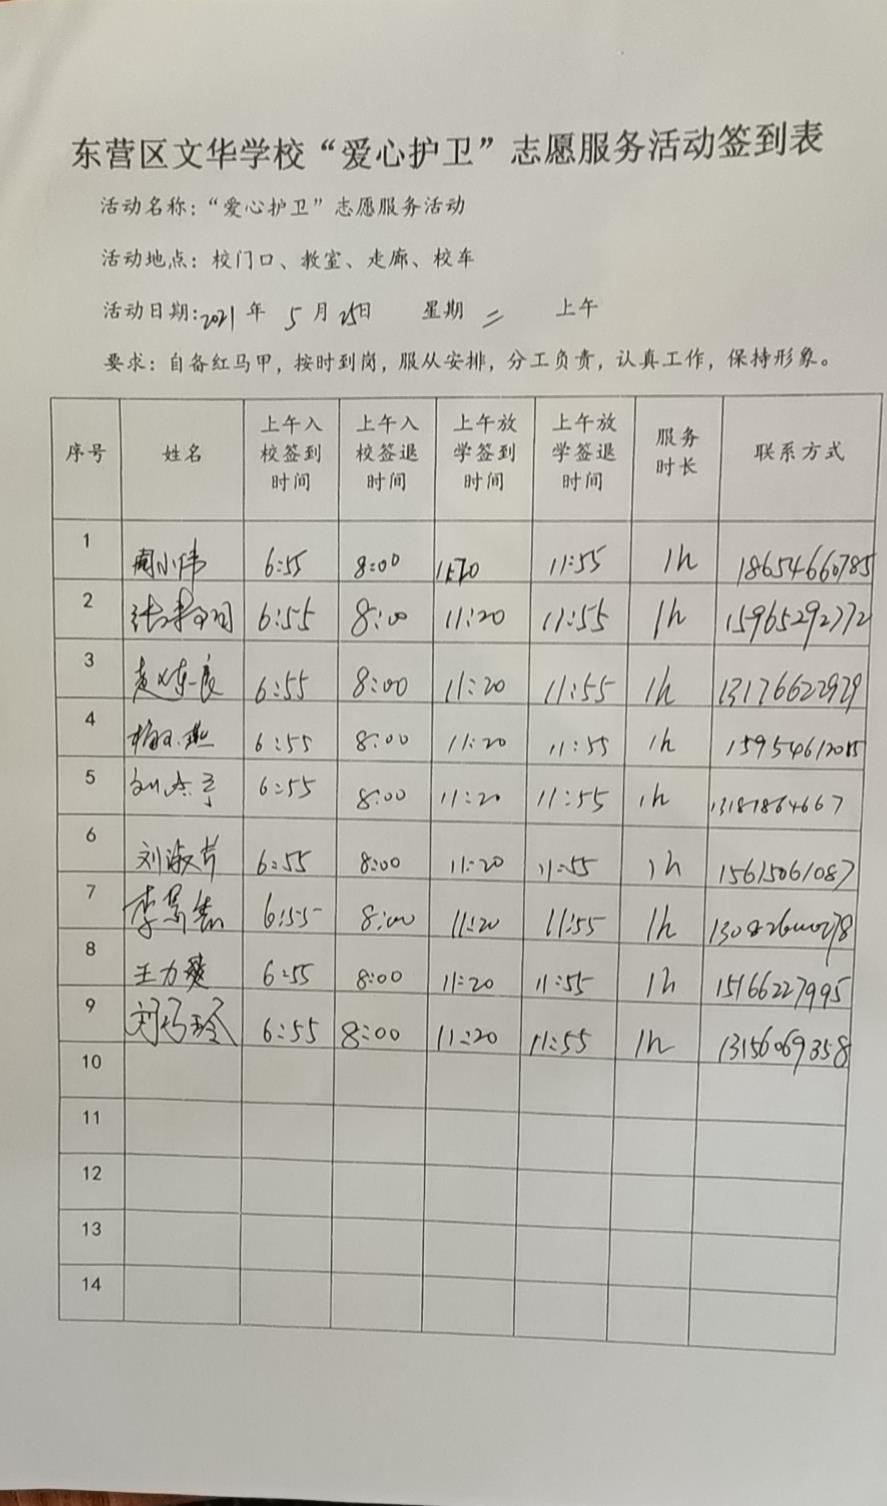 东营区文华学校“爱心护卫”志愿服务活动签到表
活动名称：“爱心护卫”志愿服务活动
活动地点：校门口、教室、走廊、校车
活动日期：2021年 5月25日 星期二 上午
要求：自备红马甲，按时到岗，服从安排，分工负责，认真工作，保持形象。
序号 姓名 上午入校签到时间 上午入校签退时间 上午放学签到时间 上午放学签退时间 服务时长 联系方式
1 周小伟 6:55 8:00 11:20 11:55 1h 18654660785
2 6:55 8:00 11:20 11:55 1h 15965292772
3 6:55 8:00 11:20 11:55 1h 13176622929
4 6:55 8:00 11:20 11:55 1h
5 6:55 8:00 11:20 11:55 1h 13181864667
6 刘淑芹 6:55 8:00 11:20 11:55 1h 15615061087
7 6:55 8:00 11:20 11:55 1h
8 王力爱 6:55 8:00 11:20 11:55 1h 15166227995
9 6:55 8:00 11:20 11:55 1h 13156069358
10
11
12
13
14